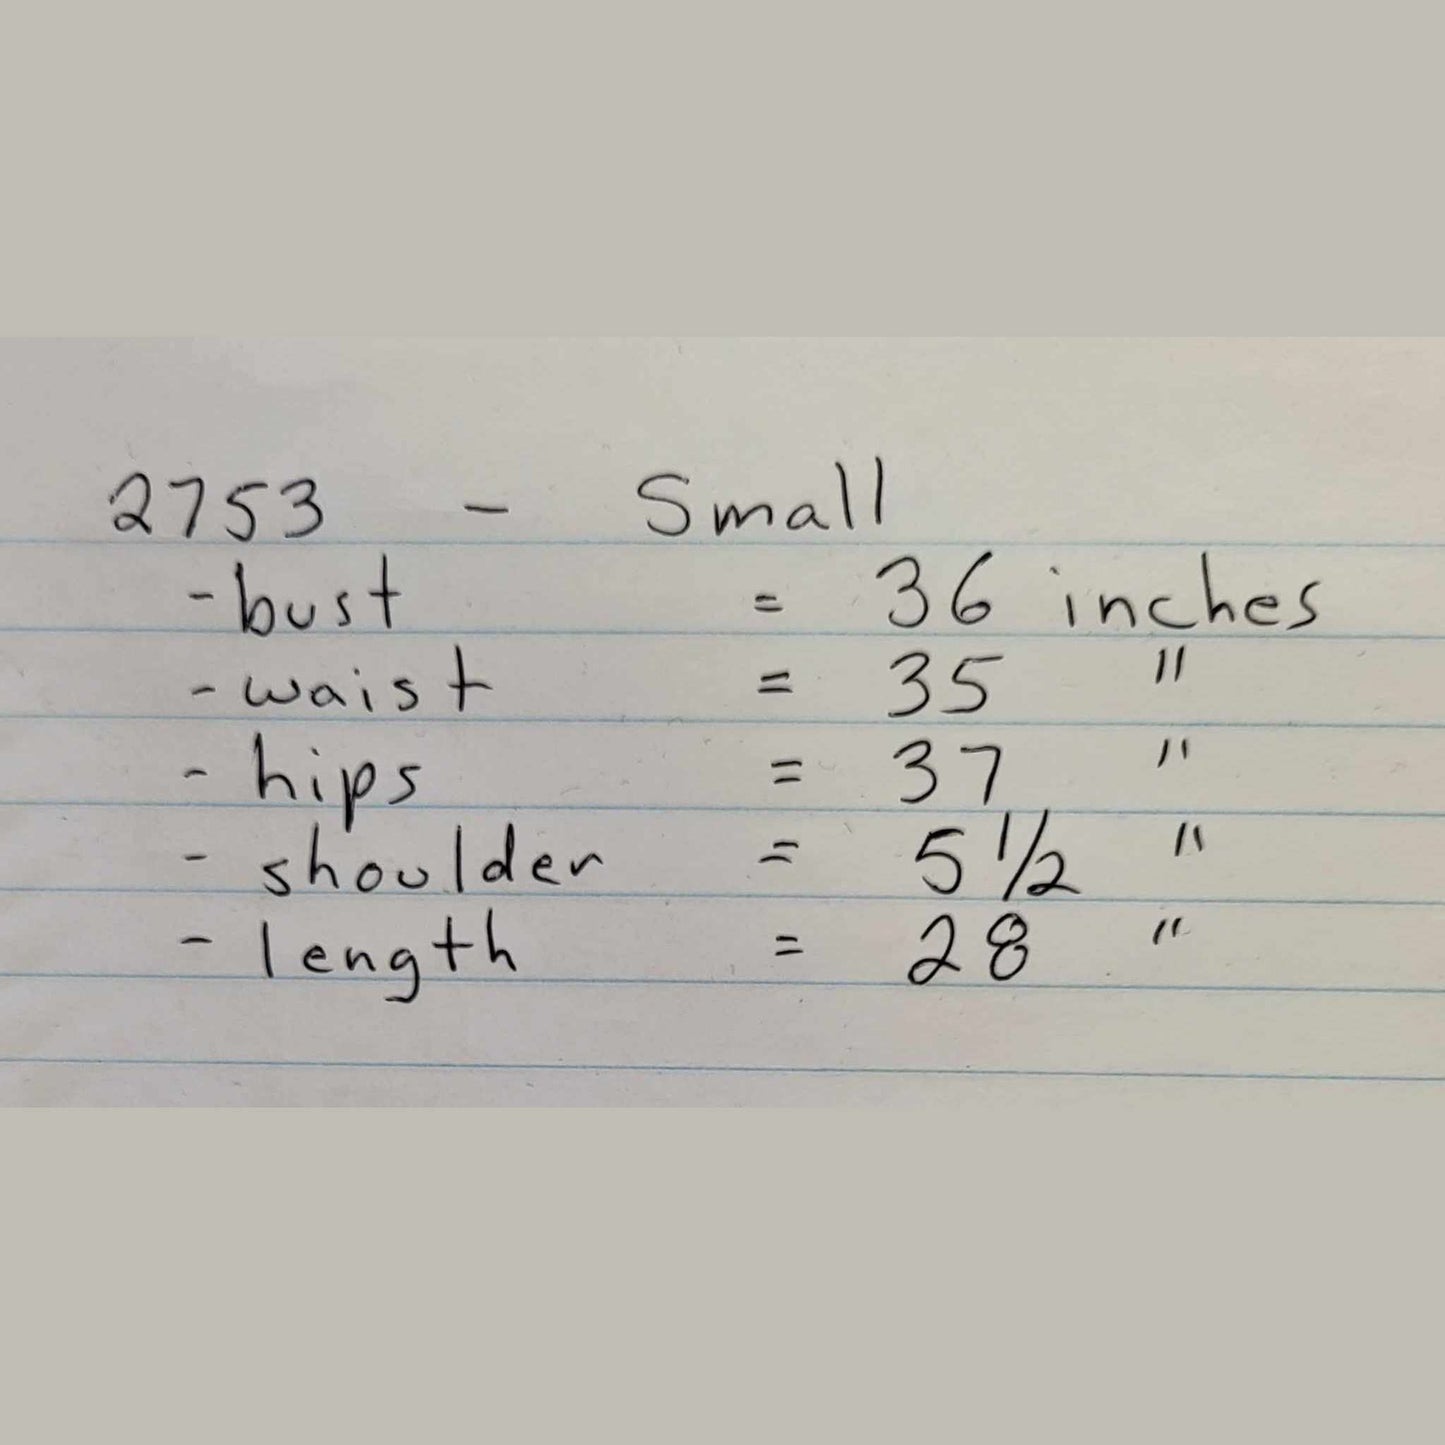 2753 - Small
- bust = 36 inches
- waist = 35 "
- hips = 37 "
- shoulder = 5 1/2 "
- length = 28 "